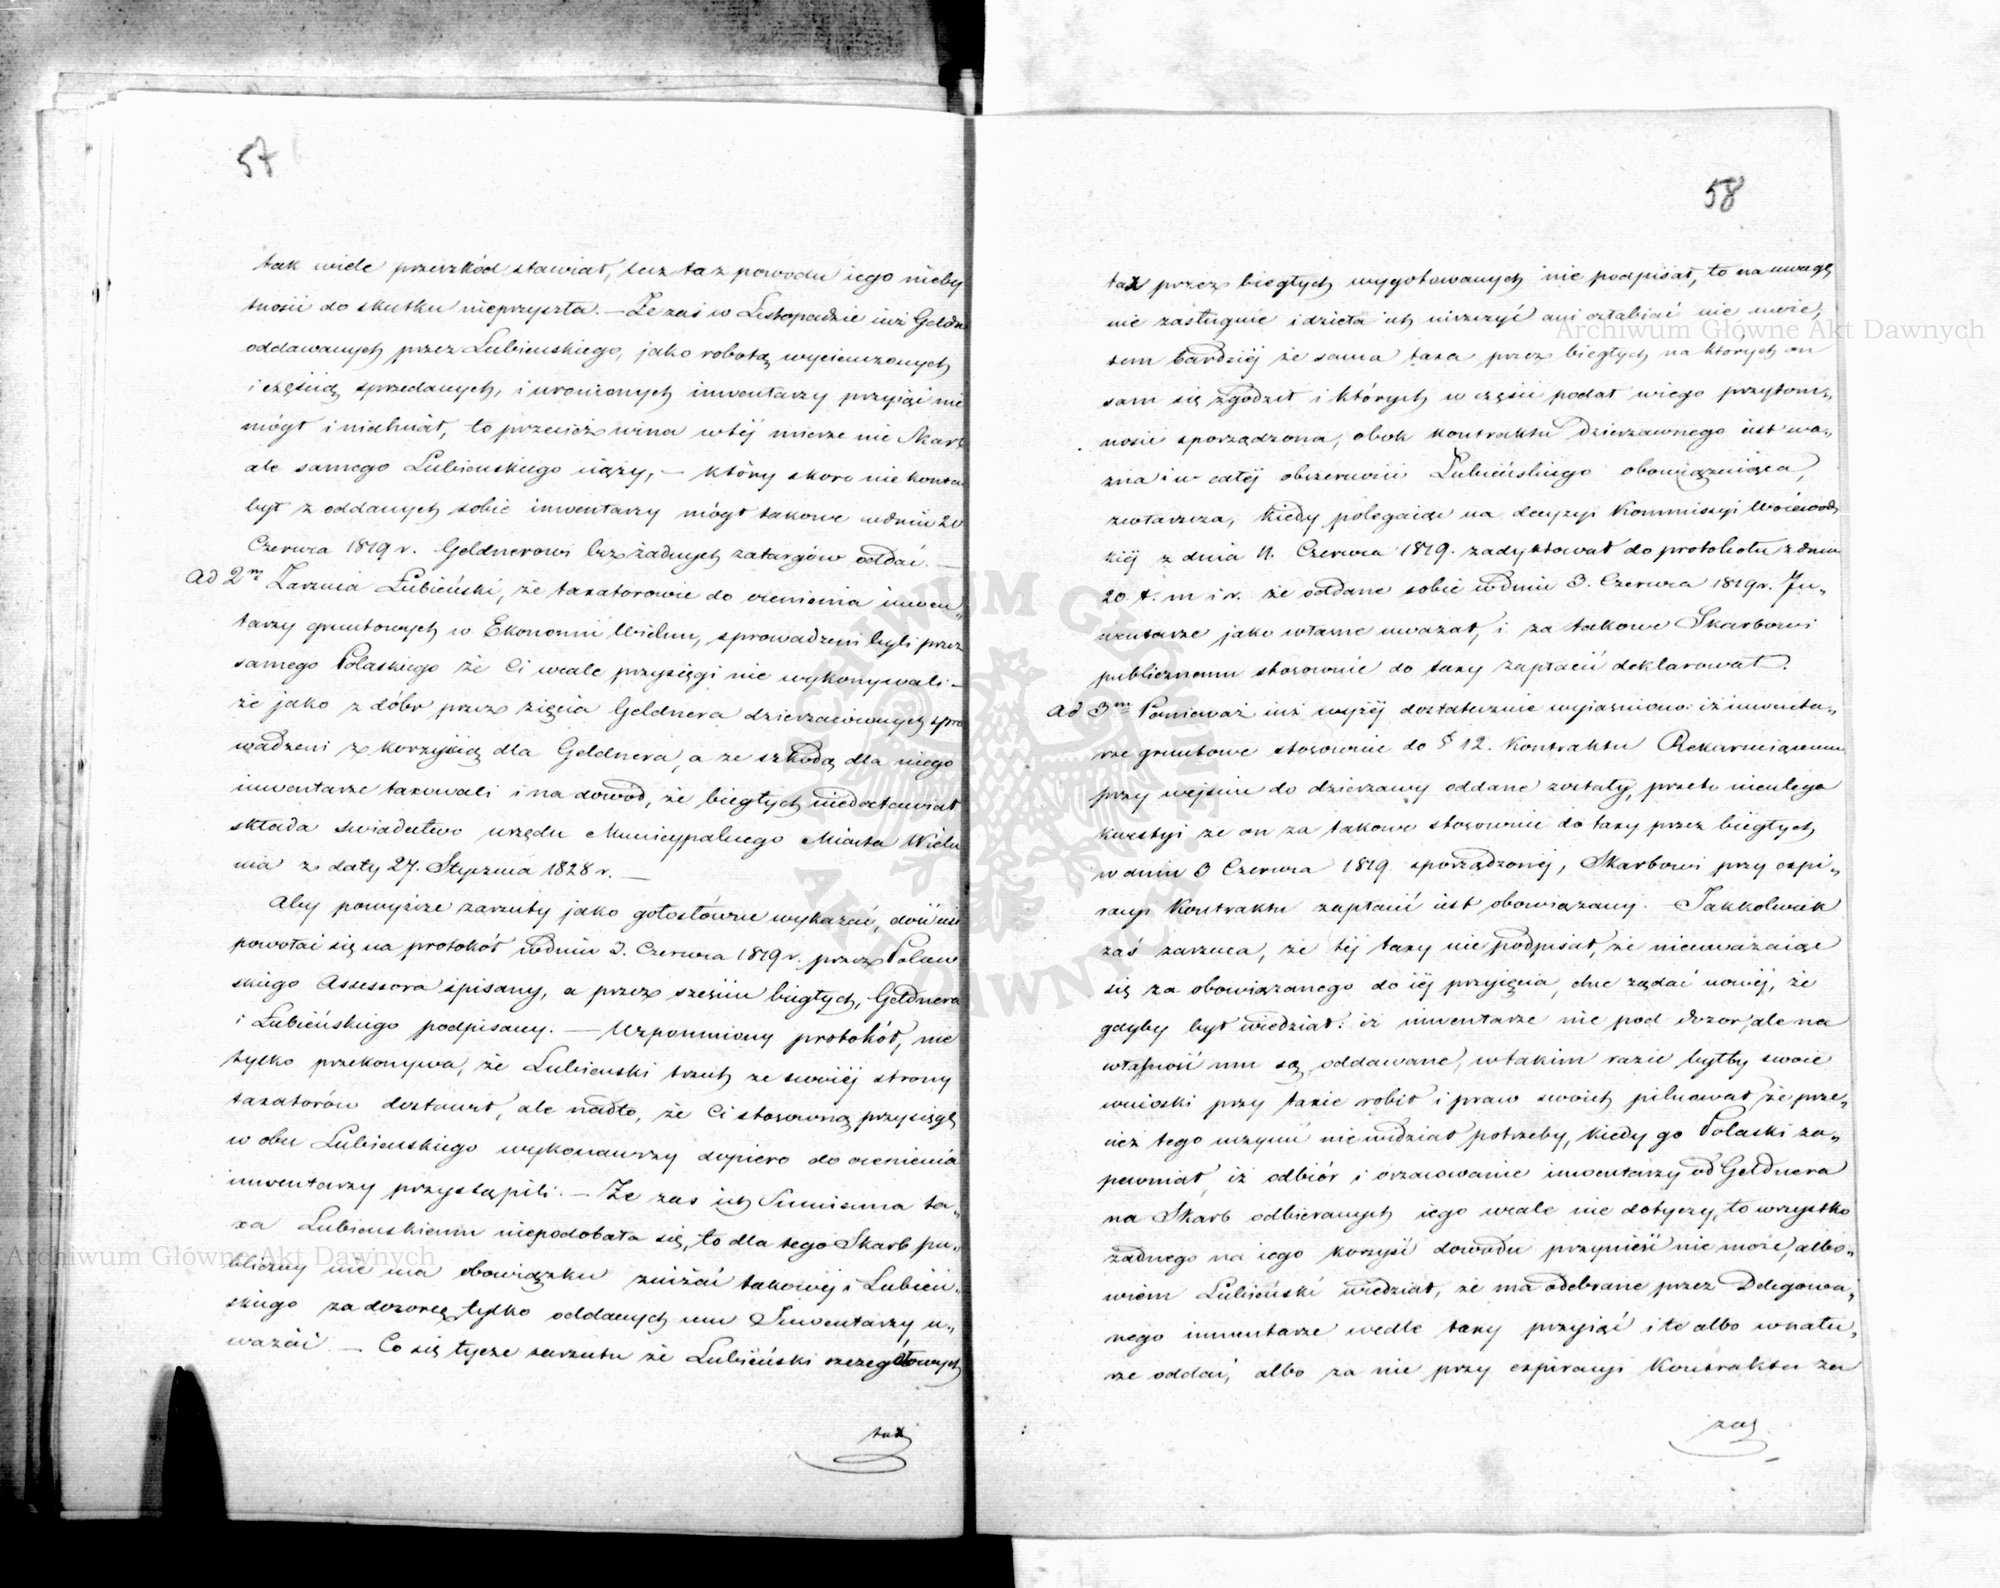 57
tak wiele przeszkód stawiał, lecz ta z powodu iego nieby
tności do skutku nieprzyszła. — Że zaś w Listopadzie iuż Geldn
oddawanych przez Lubienskiego, jako robotą wycieńczonych
i częścią sprzedanych, i uronionych inwentarzy przyiąć nie
mógł i niechciał, to przecież wina w téj mierze nie Skarb
ale samego Lubienskiego ciąży, — który skoro nie konten
był z oddanych sobie inwentarzy mógł takowe w dniu 20
Czerwca 1819 r. Geldnerowi bez żadnych zatargów oddać. —
Ad 2m Zarzuca Łubieński, że taxatorowie do ocenienia inwen„
tarzy gruntowych w Ekonomii Wielun, sprowadzeni byli przez
samego Polaskiego że Ci wcale przysięgi nie wykonywali —
że jako z dóbr przez zięcia Geldnera dzierzawionych spro
wadzeni z korzyścią dla Geldnera, a ze szkodą dla niego
inwentarze taxowali i na dowód, że biegłych niedostawiał
składa świadectwo urzędu Municypalnego Miasta Wielu
nia z daty 27. Stycznia 1828 r. —
Aby powyższe zarzuty jako gołosłówne wykazać, dość iest
powołać się na protokół w dniu 3. Czerwca 1819 r. przez Polas
skiego Assessora spisany, a przez sześciu biegłych, Geldnera
i Łubieńskiego podpisany. — Wspomniony protokół, nie
tylko przekonywa, że Lubienski trzech ze swoiéj strony
taxatorów dostawił, ale nadto, że Ci stosowną przysięgę
w obu Lubienskiego wykonawszy dopiero do ocenienia
inwentarzy przystąpili. — Że zas ich Sumienna ta„
xa Lubienskiemu niepodobała się, to dla tego Skarb pu„
bliczny nie ma obowiązku zniżać takowéj i Lubień„
skiego za dozorcę tylko oddanych mu Inwentarzy u„
ważać. — Co się tycze zarzutu że Lubieński szczegółowych
tax
58
tax przez biegłych wygotowanych nie podpisał, to na uwagę
nie zasługuie i dzieła ich niszczyć ani osłabiać nie może,
tem bardziéj że sama taxa przez biegłych na których on
sam się zgodził i których w części podał w iego przytom„
ności sporządzona, obok kontraktu dzierzawnego iest wa„
żna i w całéj obszerności Lubieńskiego obowięzuiąca,
zwłaszcza, kiedy polegaiąc na decyzyi Kommissyi Woiewodz
kiéj z dnia 11. Czerwca 1819. zadyktował do protokołu z dnia
20. t. m i r. że oddane sobie w dniu 3. Czerwca 1819 r. In„
wentarze jako własne uważał, i za takowe Skarbowi
publicznemu stosownie do taxy zapłacić deklarował.
Ad 3m Ponieważ iuż wyżéj dostatecznie wyiaśniono: iż inwenta„
rze gruntowe stosownie do § 12. Kontraktu Rekarniącemu
przy wejściu do dzierzawy oddane zostały, przeto nieulega
kwestyi że on za takowe stosownie do taxy przez biegłych
w dniu 3 Czerwca 1819. sporządzonéj, Skarbowi przy expi„
racyi Kontraktu zapłacić iest obowiązany. — Jakkolwiek
zaś zarzuca, że téj taxy nie podpisał, że nieuważaiąc
się za obowiązanego do iéj przyięcia, chce żądać nowéj, że
gdyby był wiedział: iż inwentarze nie pod dozor, ale na
własność mu są oddawane, w takim razie byłby swoie
wnioski przy taxie robił i praw swoich pilnował, że prze„
cież tego uczynić niewidział potrzeby, kiedy go Polaski za„
pewniał, iż odbiór i oszacowanie inwentarzy od Geldnera
na Skarb odbieranych iego wcale nie dotyczy, to wszystko
żadnego na iego korzyść dowodu przynieść nie może, albo„
wiem Lubieński wiedział, że ma odebrane przez Delegowa„
nego inwentarze wedle taxy przyiąć i te albo w natu„
rze oddać, albo za nie przy expiracyi Kontraktu za
zaś
Archiwum Główne Akt Dawnych
Archiwum Główne Akt Dawnych
ARCHIWUM GŁÓWNE AKT DAWNYCH